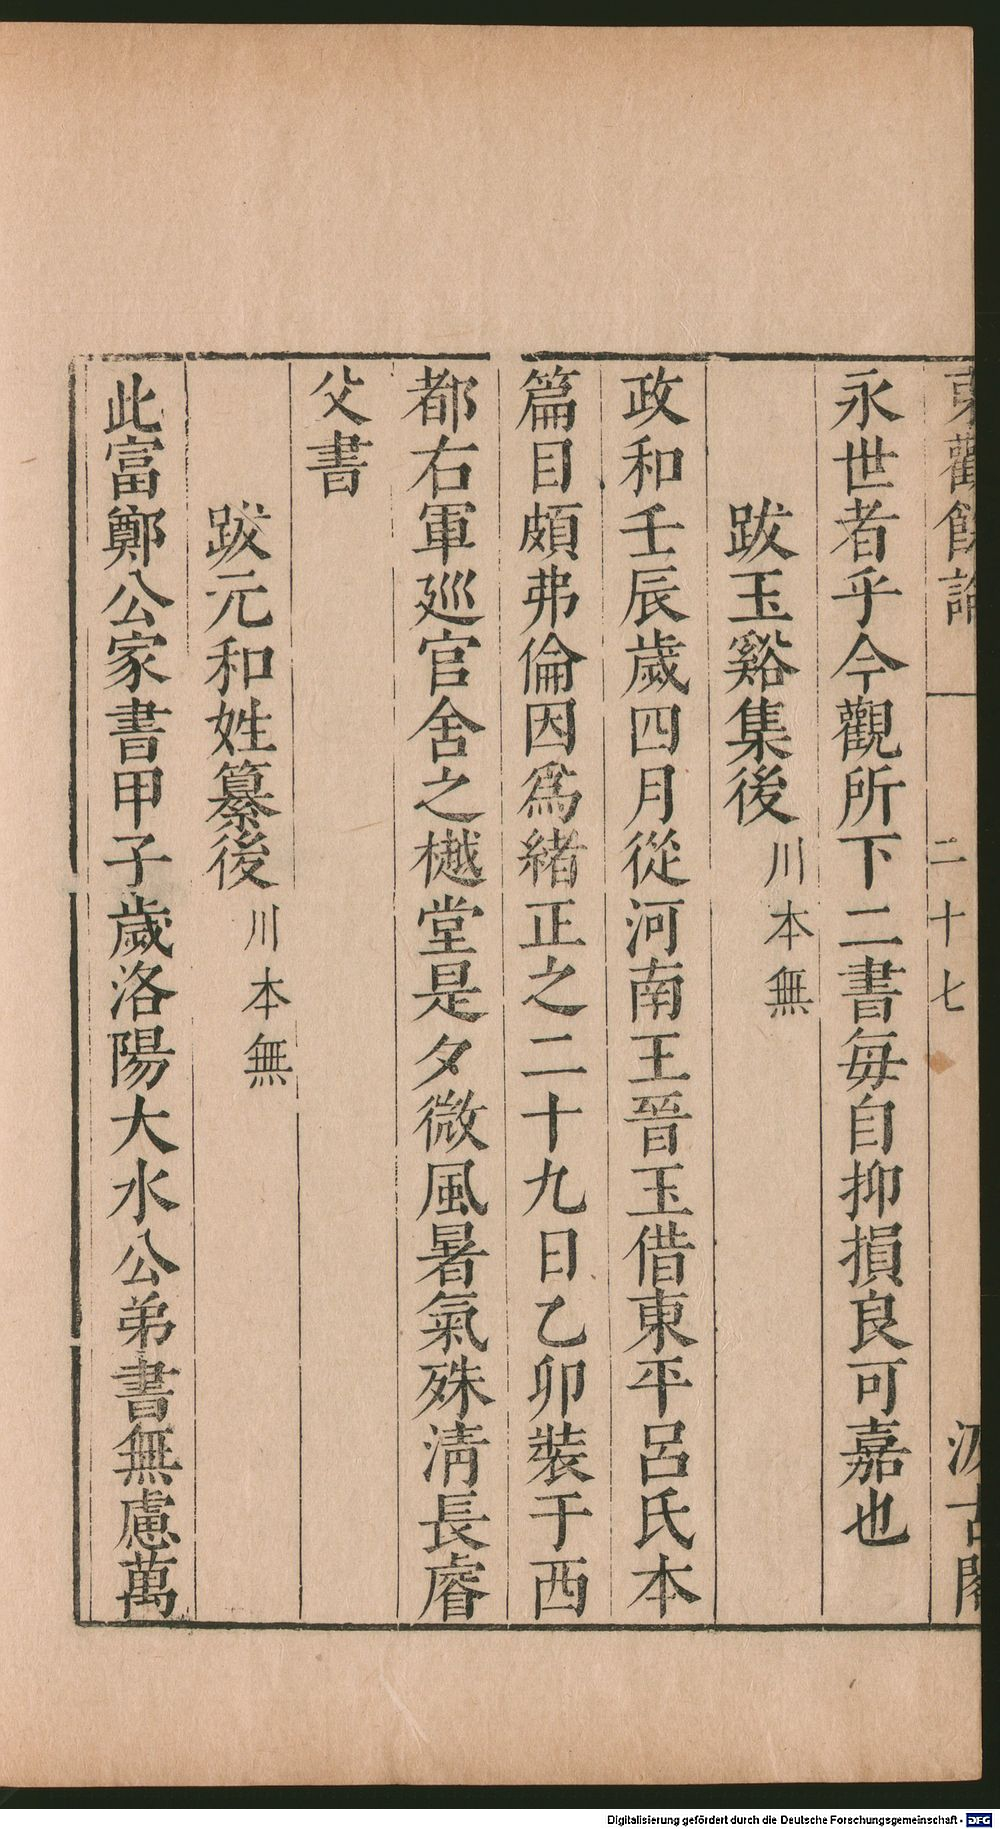 東觀餘論 二十七 汲古閣
永世者乎今觀所下二書每自抑損良可嘉也
跋玉谿集後 川本無
政和壬辰歲四月從河南王晉玉借東平呂氏本
篇目頗弗倫因爲緒正之二十九日乙卯裝于西
都右軍廵官舍之樾堂是夕微風暑氣殊淸長睿
父書
跋元和姓纂後 川本無
此富鄭公家書甲子歲洛陽大水公弟書無慮萬
Digitalisierung gefördert durch die Deutsche Forschungsgemeinschaft - DFG